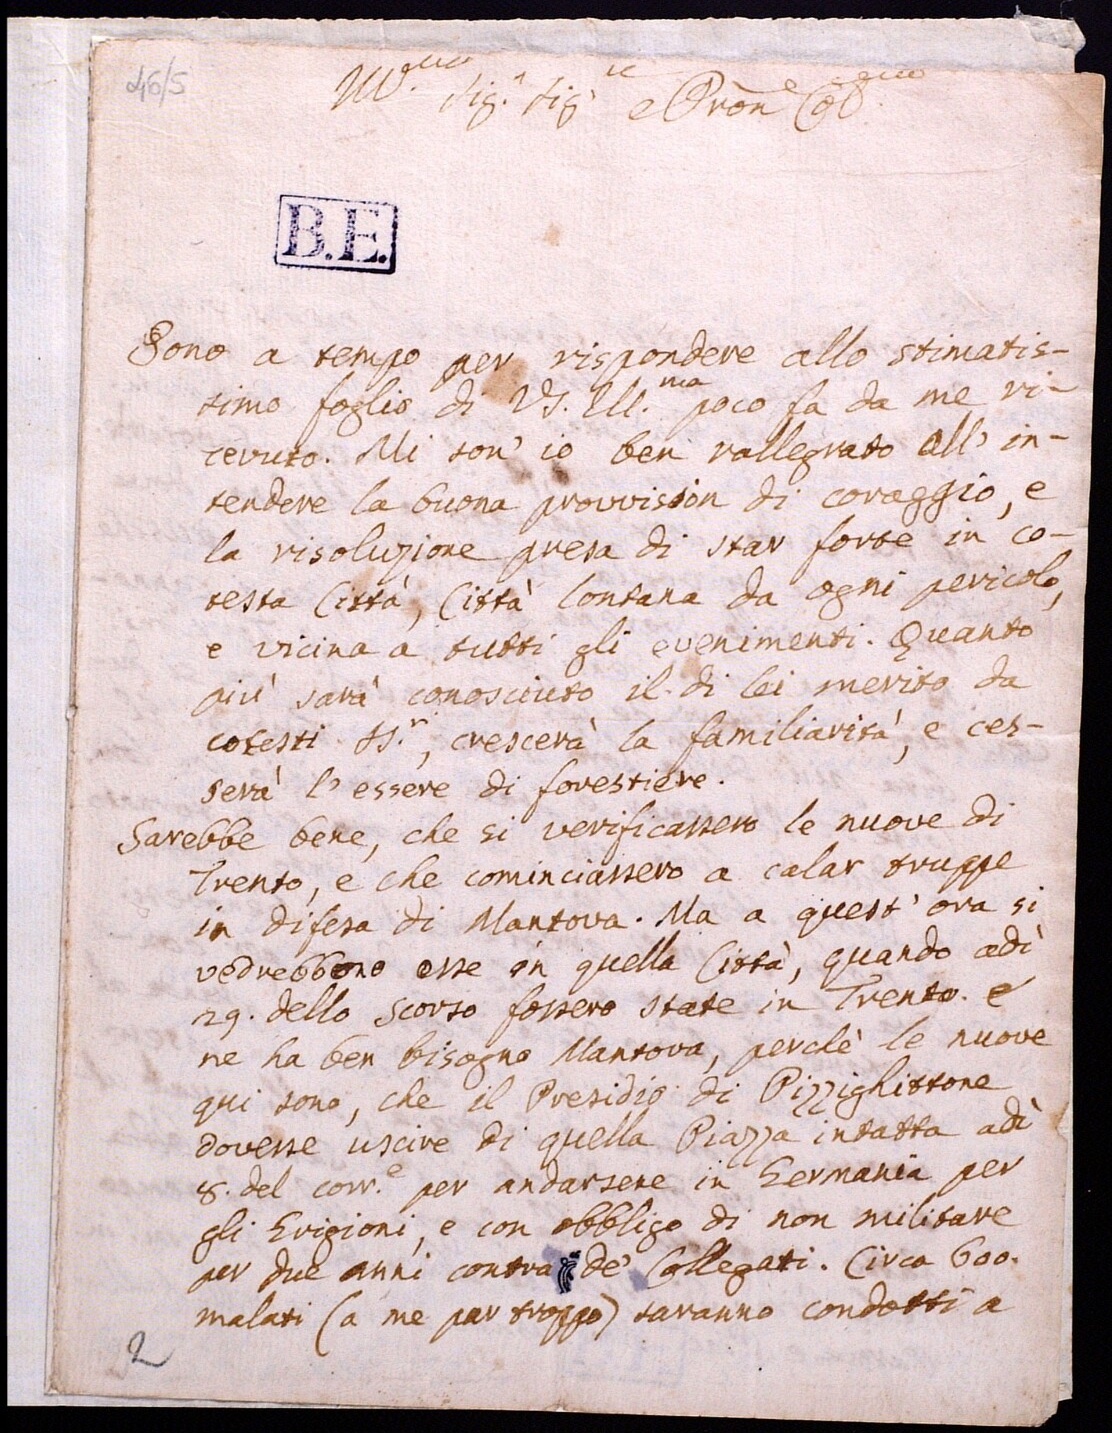 46/5
Ill.mo Sig.r Sig.r e Pron e Col.mo
B.E.
Sono a tempo per rispondere allo stimatis-
simo foglio di VS. Ill.ma poco fa da me ri-
cevuto. Mi son' io ben rallegrato all' in-
tendere la buona provvision di coraggio, e
la risoluzione presa di star forte in co-
testa Città, Città lontana da ogni pericolo,
e vicina a tutti gli evenimenti. Quanto
più sarà conosciuto il di lei merito da
cotesti SS.ri, crescerà la familiarità, e ces-
serà l' essere di forestiere.
Sarebbe bene, che si verificassero le nuove di
Trento, e che cominciassero a calar truppe
in difesa di Mantova. Ma a quest' ora si
vedrebbono esse in quella Città, quando adì
29. dello scorso fossero state in Trento. e
ne ha ben bisogno Mantova, perchè le nuove
qui sono, che il Presidio di Pizzighittone
dovesse uscire di quella Piazza intatta adì
8. del corr.e per andarsene in Germania per
gli Grigioni, e con obbligo di non militare
per due anni contra de' Collegati. Circa 600.
malati (a me par troppo) saranno condotti a
2